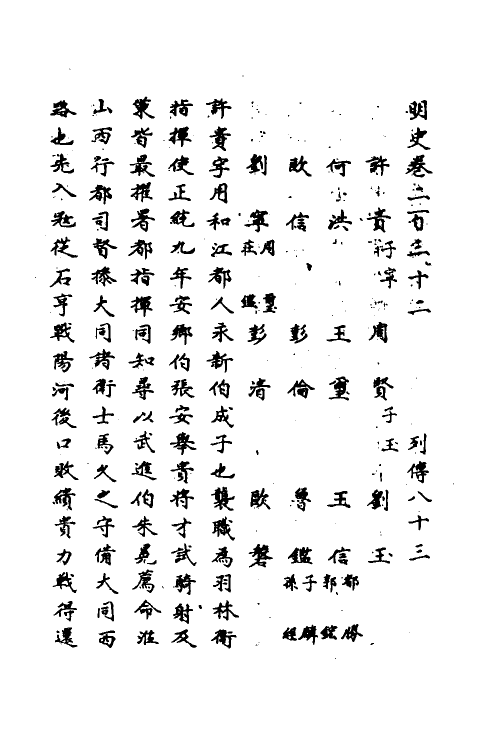 明史卷二百三十二 列傳八十三
許貴 子寧 周賢 子玉 劉玉
何洪 王璽 王信 都勝 郭鋐
歐信 彭倫 魯鑑 子麟 孫經
劉寧 周璽 莊鑑 彭清 歐磐
許貴字用和江都人永新伯成子也襲職為羽林衛
指揮使正統九年安鄉伯張安舉貴將才試騎射及
策皆最擢署都指揮同知尋以武進伯朱冕薦命涖
山西行都司督操大同諸衛士馬久之守備大同西
路也先入冦從石亨戰陽河後口敗績貴力戰得還